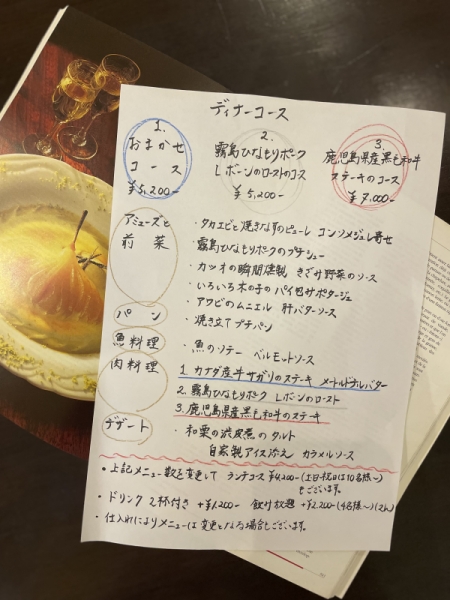 ディナーコース
1.
おまかせ
コース
¥5,200-
2.
霧島ひなもりポーク
Lボーンのローストのコース
¥5,200-
3.
鹿児島県産黒毛和牛
ステーキのコース
¥7,000-
アミューズと
前菜
・タカエビと焼きなすのピューレ コンソメジュレ寄せ
・霧島ひなもりポークのプチシュー
・カツオの瞬間燻製 きざみ野菜のソース
・いろいろ木の子のパイ包みポタージュ
・アワビのムニエル 肝バターソース
パン
・焼き立てプチパン
魚料理
・魚のソテー ベルモットソース
肉料理
1.カナダ産牛サガリのステーキ メートルドテルバター
2.霧島ひなもりポーク Lボーンのロースト
3.鹿児島県産黒毛和牛のステーキ
デザート
・和栗の渋皮煮のタルト
自家製アイス添え カラメルソース
・上記メニュー数を変更して ランチコース ¥4,200-(土日祝日は10名様〜)
もございます。
・ドリンク 2杯付き +¥1,200- 飲み放題 +¥2,200-(4名様〜)
・仕入れによりメニューは変更となる場合もございます。